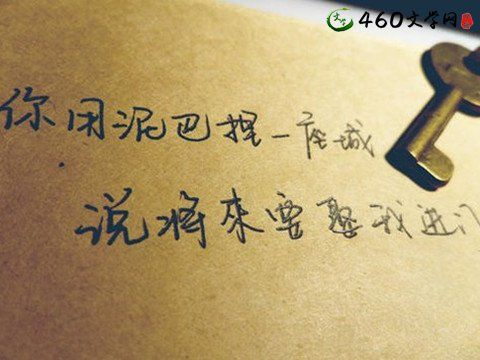 460文学网
你用泥巴捏一座城
说将來要娶我进门